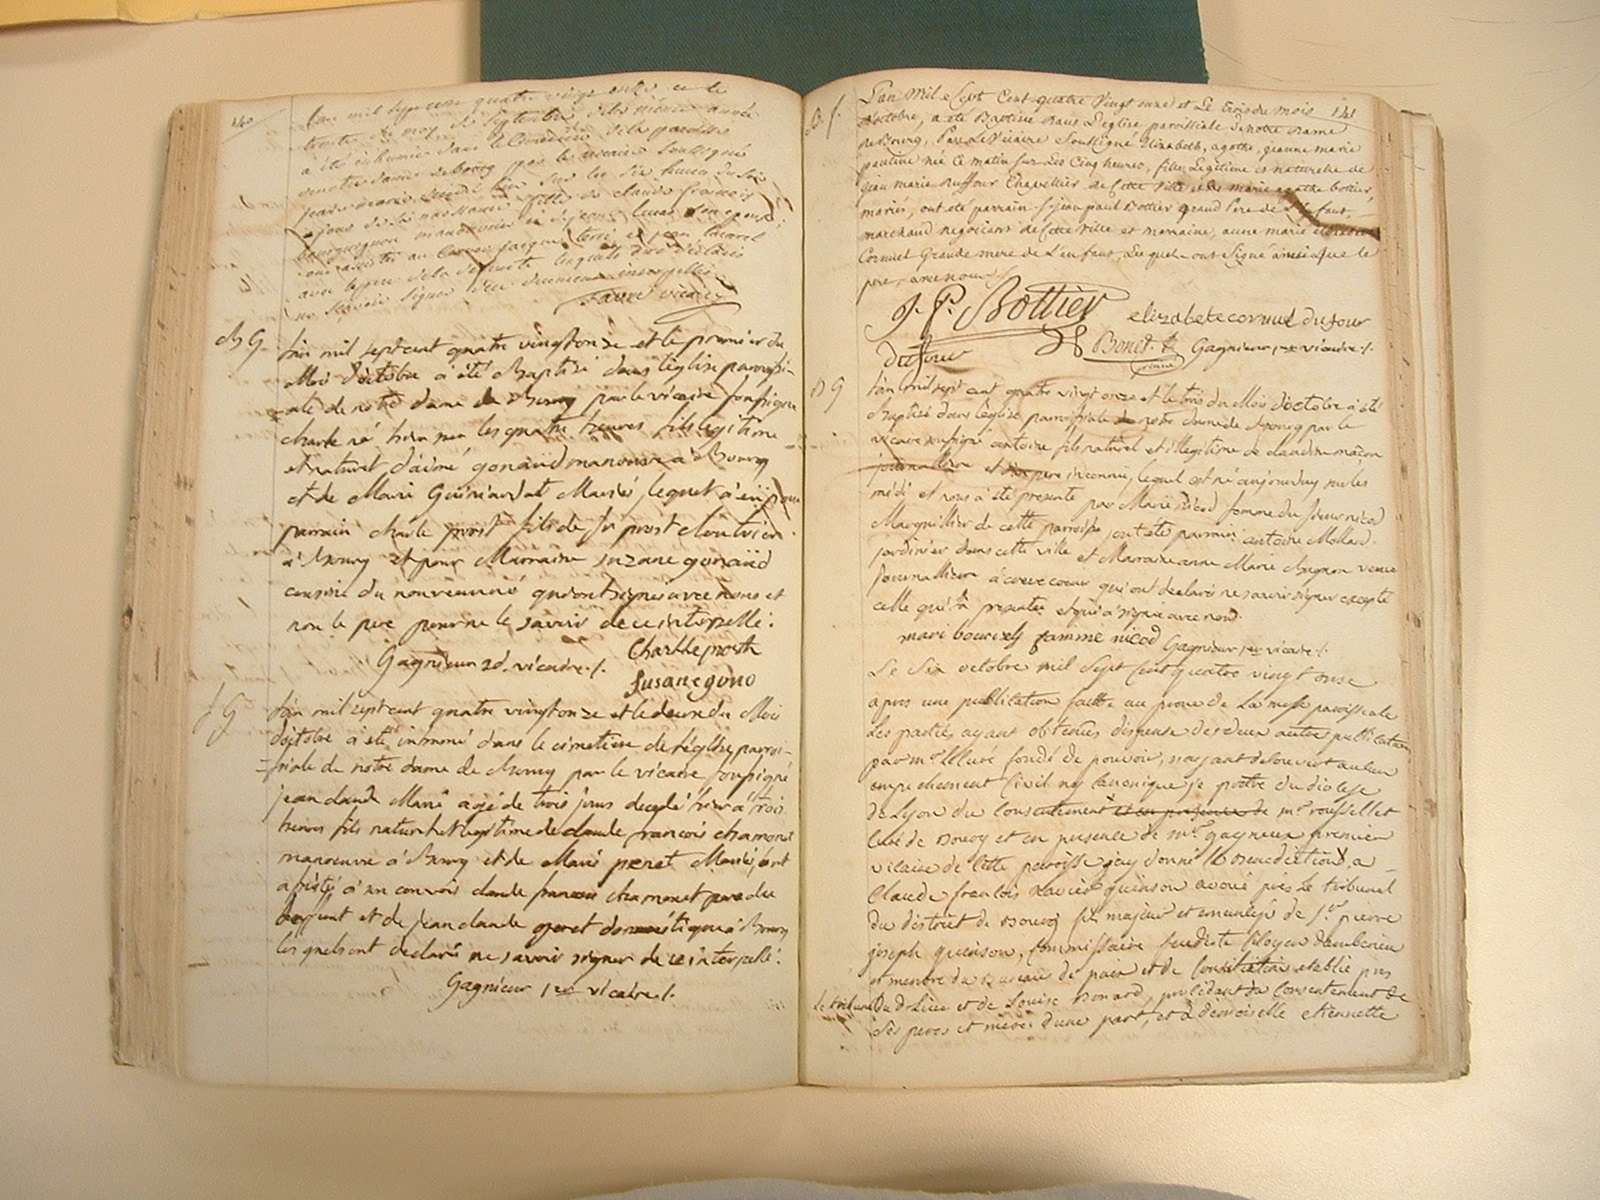 140
L'an mil sept cent quatre vingt onze et le
trente du mois de septembre de la même année
a été inhumé dans le Cimetière de la paroisse
notre dame de bourg par le vicaire soussigné
jeane marie
ajour de sa naissance fille de claude francois
manoeuvrier
avec le père de la défunte lesquels ont déclarés
ne scavoir signer de ce enquis interpellés
favre vicaire
B G
L'an mil sept cent quatre vingt onze et le premier du
Mois d'octobre a été Baptisé dans l'église paroissi-
-ale de notre dame de Bourg par le vicaire soussigné
charle né hier sur les quatre heures fils légitime
et naturel d'aimé gonand manoeuvre à Bourg
et de Marie Guérardat Mariés, lequel a eu pour
parrain charle prost fils de fr prost cloutrier
à Bourg et pour Marraine suzane gonand
cousine du nouveau né qui ont signés avec nous et
non le pere pour ne le savoir de ce interpellé.
Charlle prosth
Gagnieur 1er. vicaire ./.
susane gono
f G
L'an mil sept cent quatre vingt onze et le deux du Mois
d'octobre a été inhumé dans le cimetière de l'église parois-
-siale de notre dame de Bourg par le vicaire soussigné
jean claude Marie agé de trois jours decedé hier à trois
heures fils naturel et legitime de claude françois chamonet
manoeuvre à Bourg et de Marie peret Mariés, ont
assisté à son convois claude francois chamonet pere du
deffunt et de jean claude goret domestique à Bourg
les quels ont declarés ne savoir signer de ce interpellé.
Gagnieur 1er vicaire ./.
141
B f.
L'an Mil Sept Cent quatre Vingt onze et Le trois du Mois
d'octobre, a été Baptisée Dans L'eglise paroissiale De notre Dame
De Bourg, Par Le Vicaire Soussigné Elizabeth, agathe, jeanne marie
pauline née ce matin sur Les Cinq heures, fille Legitime et naturelle de
jean marie Duffour Chapellier de Cette Ville et de marie agathe bottier
mariés, ont été parrain S. jean paul Bottier grand Pere de L'enfant,
marchand negociant de Cette Ville et marraine, anne marie
Cornuet Grande mere de L'enfant, Lesquels ont Signé ainsi que le
pere, avec nous.
J. P. Bottier
elizabete cornuel dufour
dufour
Bonet
Gagnieur 1er vicaire ./.
B G
L'an mil sept cent quatre vingt onze et le trois du Mois d'octobre a été
Baptisé dans l'église paroissiale de notre dame de Bourg par le
vicaire soussigné antoine fils naturel et illegitime de claudine mâcon
journaliere et pere inconnu, lequel est né aujourd'huy sur les
midi et nous a été presenté par Marie femme du sieur nicod
Marguillier de cette paroisse, ont été parrain antoine Mollard
jardinier dans cette ville et Marraine anne Marie Bugnon veuve
journalliere à curecoeur qui ont declarés ne savoir signer excepté
celle qui l'a presenté et qui a signé avec nous.
mari famme nicod Gagnieur 1er vicaire ./.
Le Six octobre mil Sept Cent quatre vingt onze
apres une publication faitte au prone de la messe paroissiale
Les parties ayant obtenües dispense des deux autres publications
par mr. fondé de pouvoir, ne s'étant découvert aucun
empechement Civil ny Canonique, je pretre du diocese
de Lyon du Consentement et en presence de mr. rousselet
Curé de Bourg et en presence de mr. gagnieur premier
vicaire de cette paroisse, jay donné la Benediction a
Claude francois xavier quinson avoué près Le tribunal
du district de Bourg fils majeur et emancipé de Sr. pierre
joseph quinson, Commissaire feudiste Citoyen d'amberieu
et membre du Bureau de paix et de Conciliation etablie pres
Le tribunal Du d. Lieu et de Louise Bonard, procedant du Consentement de
Ses peres et meres d'une part, et a demoiselle etiennette